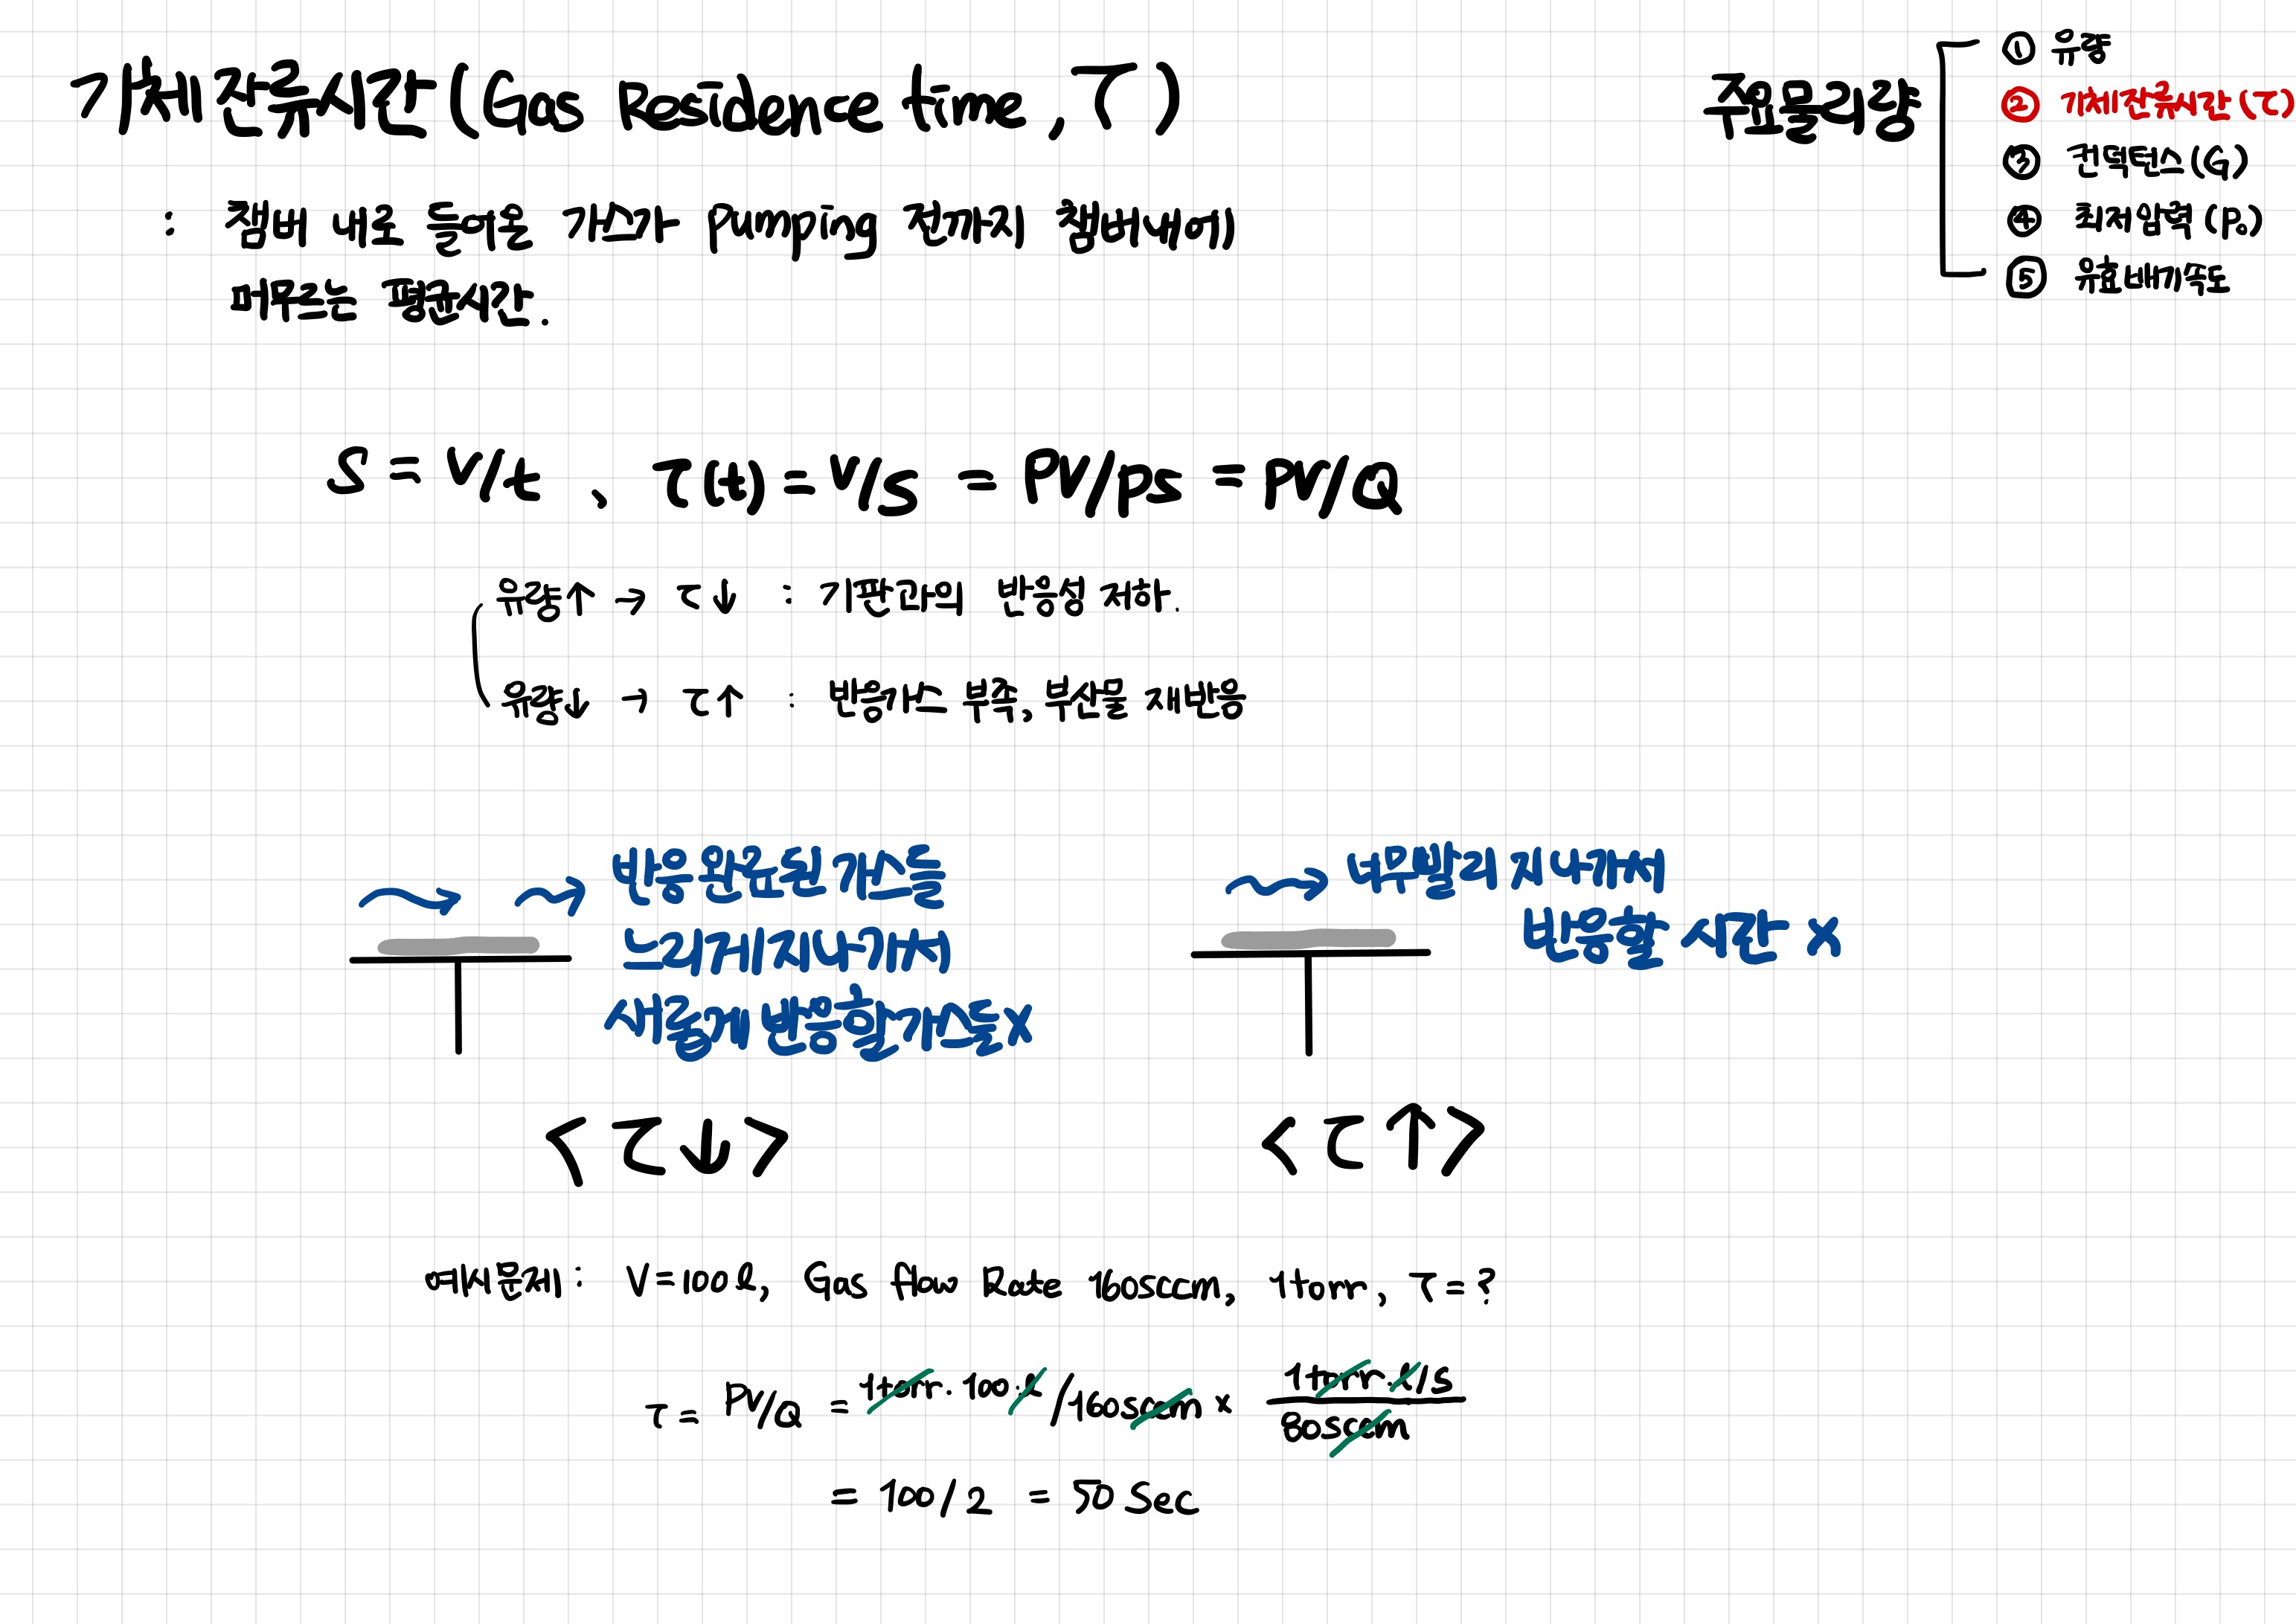 기체 잔류시간 (Gas Residence time, τ)
: 챔버 내로 들어온 가스가 Pumping 전까지 챔버내에
머무르는 평균시간.
주요물리량
① 유량
② 기체잔류시간(τ)
③ 컨덕턴스(G)
④ 최저압력(P₀)
⑤ 유효배기속도
S = V/t , τ(t) = V/S = PV/PS = PV/Q
유량↑ → τ↓ : 기판과의 반응성 저하.
유량↓ → τ↑ : 반응가스 부족, 부산물 재반응
반응 완료된 가스들
느리게 지나가서
새롭게 반응할 가스들 X
<τ↓>
너무빨리 지나가서
반응할 시간 X
<τ↑>
예시문제: V=100ℓ, Gas flow Rate 160sccm, 1torr, τ=?
τ = PV/Q = 1torr·100·ℓ/160sccm × 1torr·ℓ/s / 80sccm
= 100/2 = 50 Sec